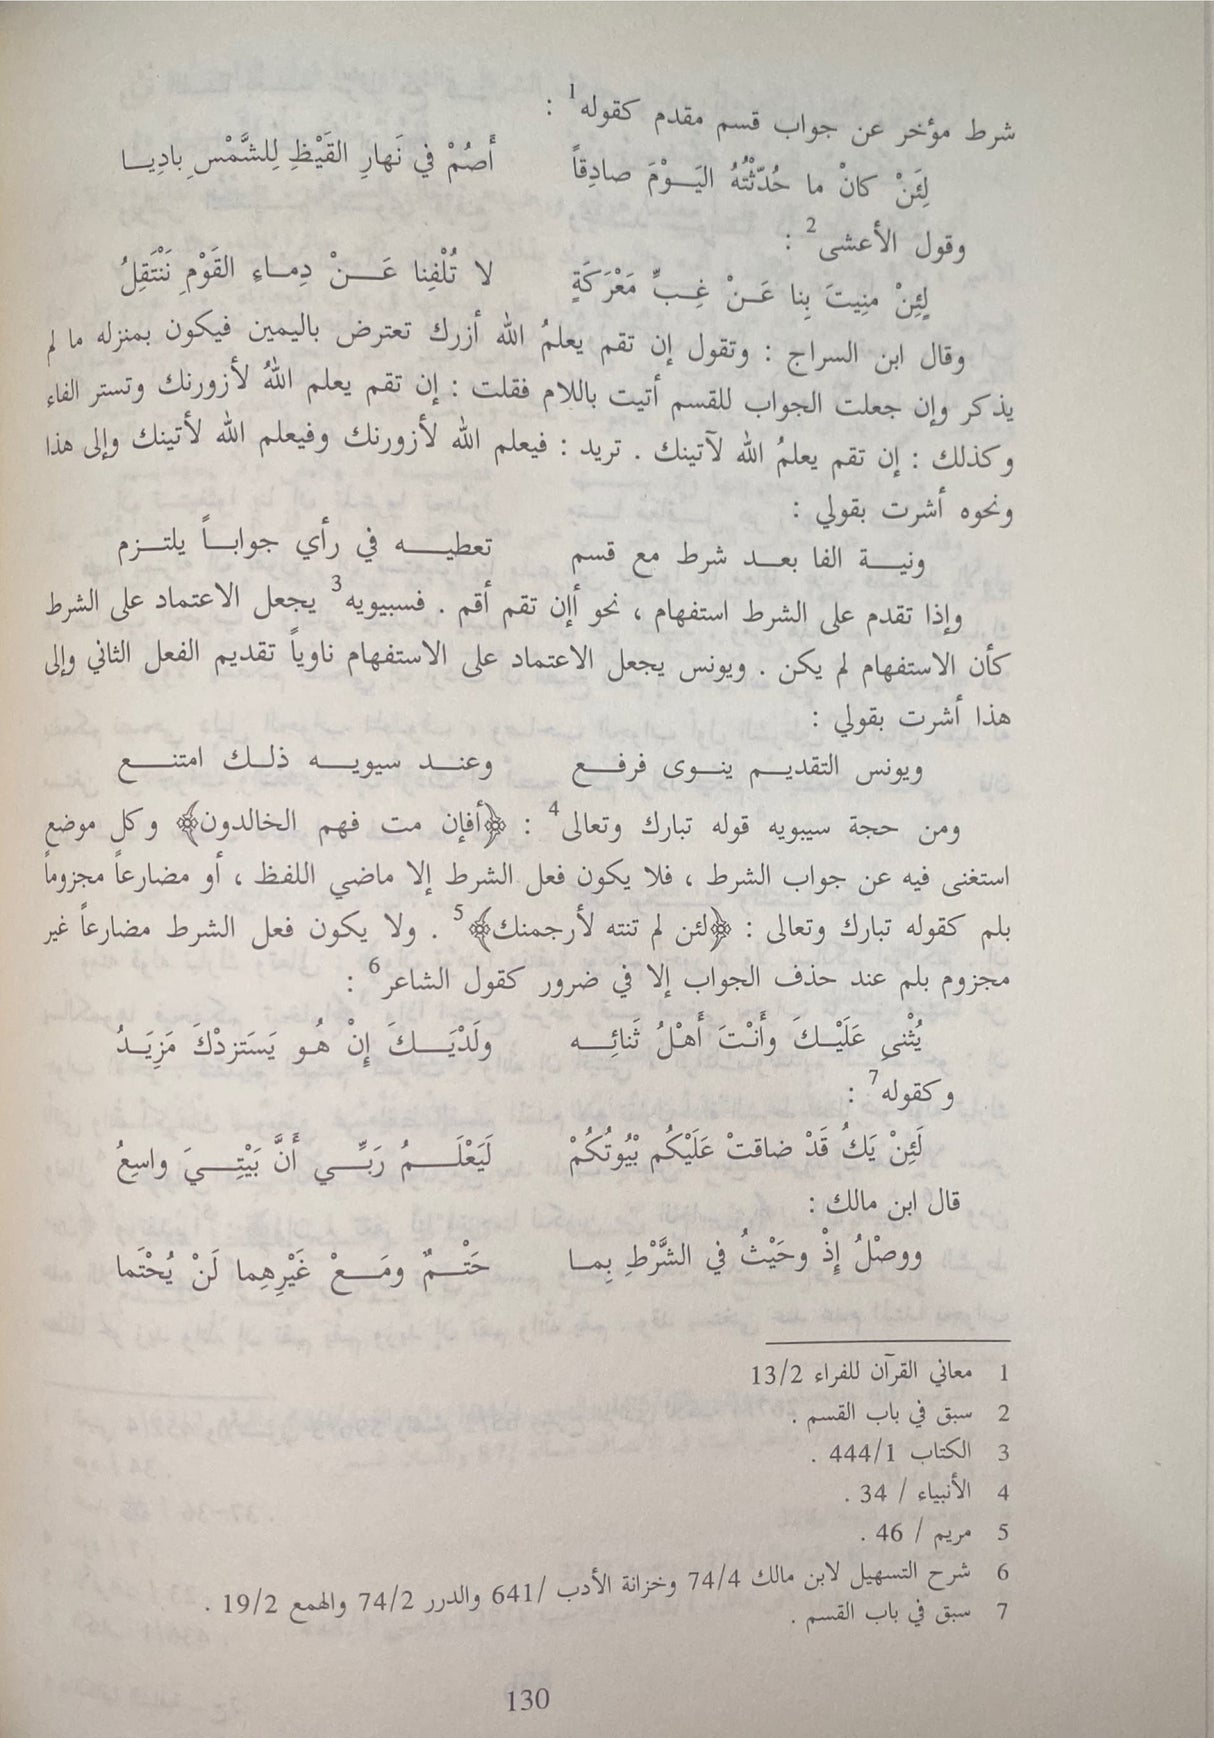 شرط مؤخر عن جواب قسم مقدم كقوله1 :
لِئَنْ كانْ ما حُدّثْتُهُ اليَـــوْمَ صادِقاً أَصُمْ في نَهارِ القَيْظِ لِلشَّمْسِ بادِيـــا
وقول الأعشى2 :
لِئِنْ منِيتَ بِنا عَـــنْ غِـــبِّ مَعْرَكَةٍ لا تُلْفِنا عَـــنْ دِمـــاءِ القَوْمِ نَنْتَقِلُ
وقال ابن السراج : وتقول إن تقم يعلمُ الله أزرك تعترض باليمين فيكون بمنزله ما لم
يذكر وإن جعلت الجواب للقسم أتيت باللام فقلت : إن تقم يعلم اللهُ لأزورنك وتستر الفاء
وكذلك : إن تقم يعلمُ الله لآتينك . تريد : فيعلم الله لأزورنك وفيعلم الله لأتينك وإلى هذا
ونحوه أشرت بقولي :
ونيـــة الفا بعـــد شرط مع قسم تعطيـــه في رأي جوابـــاً يلتـــزم
وإذا تقدم على الشرط استفهام ، نحو أإن تقم أقم . فسبيويه3 يجعل الاعتماد على الشرط
كأن الاستفهام لم يكن . ويونس يجعل الاعتماد على الاستفهام ناوياً تقديم الفعل الثاني وإلى
هذا أشرت بقولي :
ويونس التقديـــم ينـــوى فرفـــع وعنـــد سيويـــه ذلـــك امتنـــع
ومن حجة سيبويه قوله تبارك وتعالى4 : ﴿أفإن مت فهم الخالدون﴾ وكل موضع
استغنى فيه عن جواب الشرط ، فلا يكون فعل الشرط إلا ماضي اللفظ ، أو مضارعاً مجزوماً
بلم كقوله تبارك وتعالى : ﴿لئن لم تنته لأرجمنك﴾5 . ولا يكون فعل الشرط مضارعاً غير
مجزوم بلم عند حذف الجواب إلا في ضرور كقول الشاعر6 :
يُثْنىِ عَلَيْـــكَ وأَنْـتَ أَهْـلُ ثَنائِـــه ولَدْيَـــكَ إِنْ هُـو يَسَتزدْكَ مَزِيَـــدُ
وكقوله7 :
لَئِنْ يَكُ قَدْ ضاقتْ عَلَيْكُم بْيُوتُكُمْ لَيَعْلَـــمُ رَبِّـــي أَنَّ بَيْتِـــيَ واسِعُ
قال ابن مالك :
ووصْلُ إِذْ وحَيْثُ في الشَّرْطِ بِمـــا حَتْـــمٌ ومَـــعْ غَيْرِهِما لَنْ يُحْتَما
1 معاني القرآن للفراء 13/2
2 سبق في باب القسم .
3 الكتاب 444/1 .
4 الأنبياء / 34 .
5 مريم / 46 .
6 شرح التسهيل لابن مالك 74/4 وخزانة الأدب /641 والدرر 74/2 والهمع 19/2 .
7 سبق في باب القسم .
130